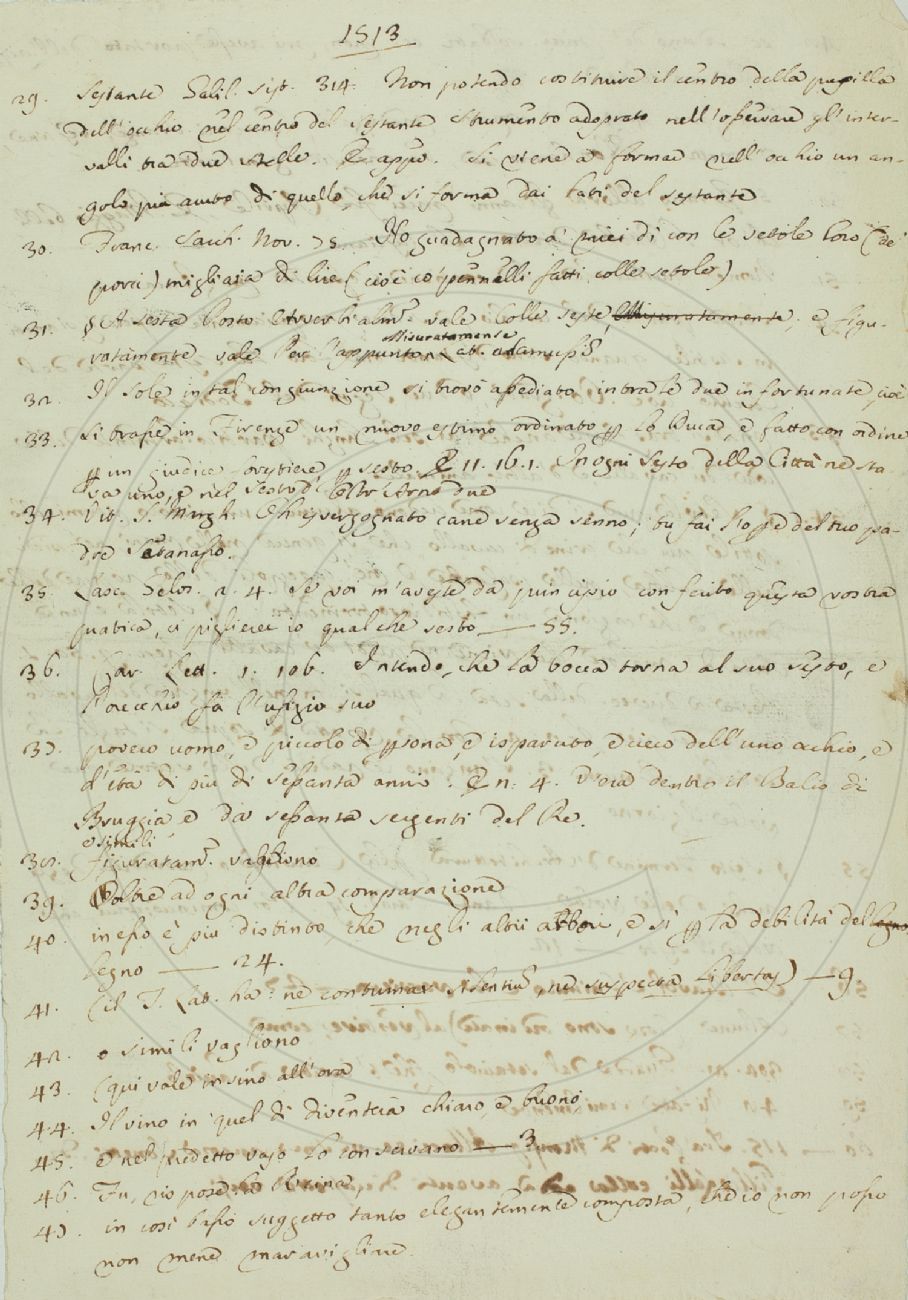 1513
29. Sestante Galil. sist. 314. Non potendo costituire il centro della pupilla
dell'occhio nel centro del Sestante strumento adoprato nell'osservare gl'inter-
valli tra due stelle. E appo. Si viene a formar nell'occhio un an-
golo più acuto di quello, che si forma dai lati del sestante
30. Franc. Sacch. Nov. 75. Ho guadagnato a' miei dì con le setole loro (de'
porci) migliaia di lire (cioè co' pennelli fatti colle setole)
31. § A sesta Posto Avverbialm. vale Colle seste, Misuratamente; e figu-
Misuratamente
ratamente vale Per l'appunto. Lat. adamussi
32. Il Sole in tal congiunzione si trovò assediato intra le due infortunate, cioè
33. Si trasse in Firenze un nuovo estimo ordinato p lo Duca, e fatto con ordine
p un giudice forestiere p sesto. E 11. 16. 1. In ogni Sesto della Città ne sta-
va uno, e nel Sesto d'Oltr'Arno due
34. Vit. S. Margh. Oh svergognato cane senza senno; tu fai l'opè del tuo pa-
dre Satanasso.
35. Lasc. Gelos. 2. 4. Se voi m'aveste da principio conferito questa vostra
pratica, ci piglierei io qualche sesto — 55.
36. Car. Lett. 1. 106. Intendo, che la bocca torna al suo sesto, e
l'orecchio fa l'ufizio suo
37. povero uomo, e piccolo di psona, e isparuto, e cieco dell'uno occhio, e
d'età di più di sessanta anni. E n. 4. V'era dentro il Balio di
Bruggia e da sessanta sergenti del Re.
e simili
38. figuratam. vagliono
39. Oltre ad ogni altra comparazione
40. in esso è più distinto, che negli altri arbori, e si p la debilità del legno
legno — 24.
41. (il T. Lat. ha: ne contumax silentiu, ne suspecta libertas) — 9
42. e simili vagliono
43. (qui vale insino all'ora
44. Il vino in quel dì diventerà chiaro, e buono,
45. e nel predetto vaso lo conservano — 3
46. Fu, rispose la Reina,
47. in così basso suggetto tanto elegantemente composta, che io non posso
non mene maravigliare.